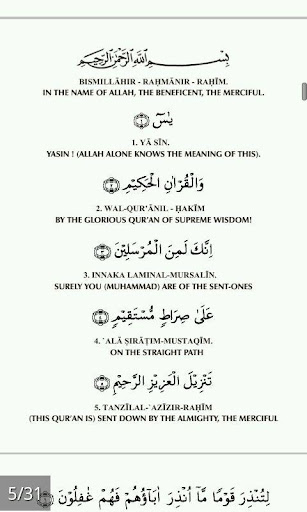 بِسْمِ اللَّهِ الرَّحْمَٰنِ الرَّحِيمِ
BISMILLÂHIR - RAḤMÂNIR - RAḤÎM.
IN THE NAME OF ALLAH, THE BENEFICENT, THE MERCIFUL.
يٰسٓ ﴿١﴾
1. YÂ SÎN.
YASIN ! (ALLAH ALONE KNOWS THE MEANING OF THIS).
وَالْقُرْاٰنِ الْحَكِيْمِ ﴿٢﴾
2. WAL-QUR'ÂNIL - ḤAKÎM
BY THE GLORIOUS QUR'AN OF SUPREME WISDOM!
اِنَّكَ لَمِنَ الْمُرْسَلِيْنَ ﴿٣﴾
3. INNAKA LAMINAL-MURSALÎN.
SURELY YOU (MUHAMMAD) ARE OF THE SENT-ONES
عَلٰى صِرَاطٍ مُّسْتَقِيْمٍ ﴿٤﴾
4. 'ALÂ ṢIRÂṬIM-MUSTAQÎM.
ON THE STRAIGHT PATH
تَنْزِيْلَ الْعَزِيْزِ الرَّحِيْمِ ﴿٥﴾
5. TANZÎLAL-'AZÎZIR-RAḤÎM
(THIS QUR'AN IS) SENT DOWN BY THE ALMIGHTY, THE MERCIFUL
لِتُنْذِرَ قَوْمًا مَّآ اُنْذِرَ اٰبَآؤُهُمْ فَهُمْ غٰفِلُوْنَ
5/31